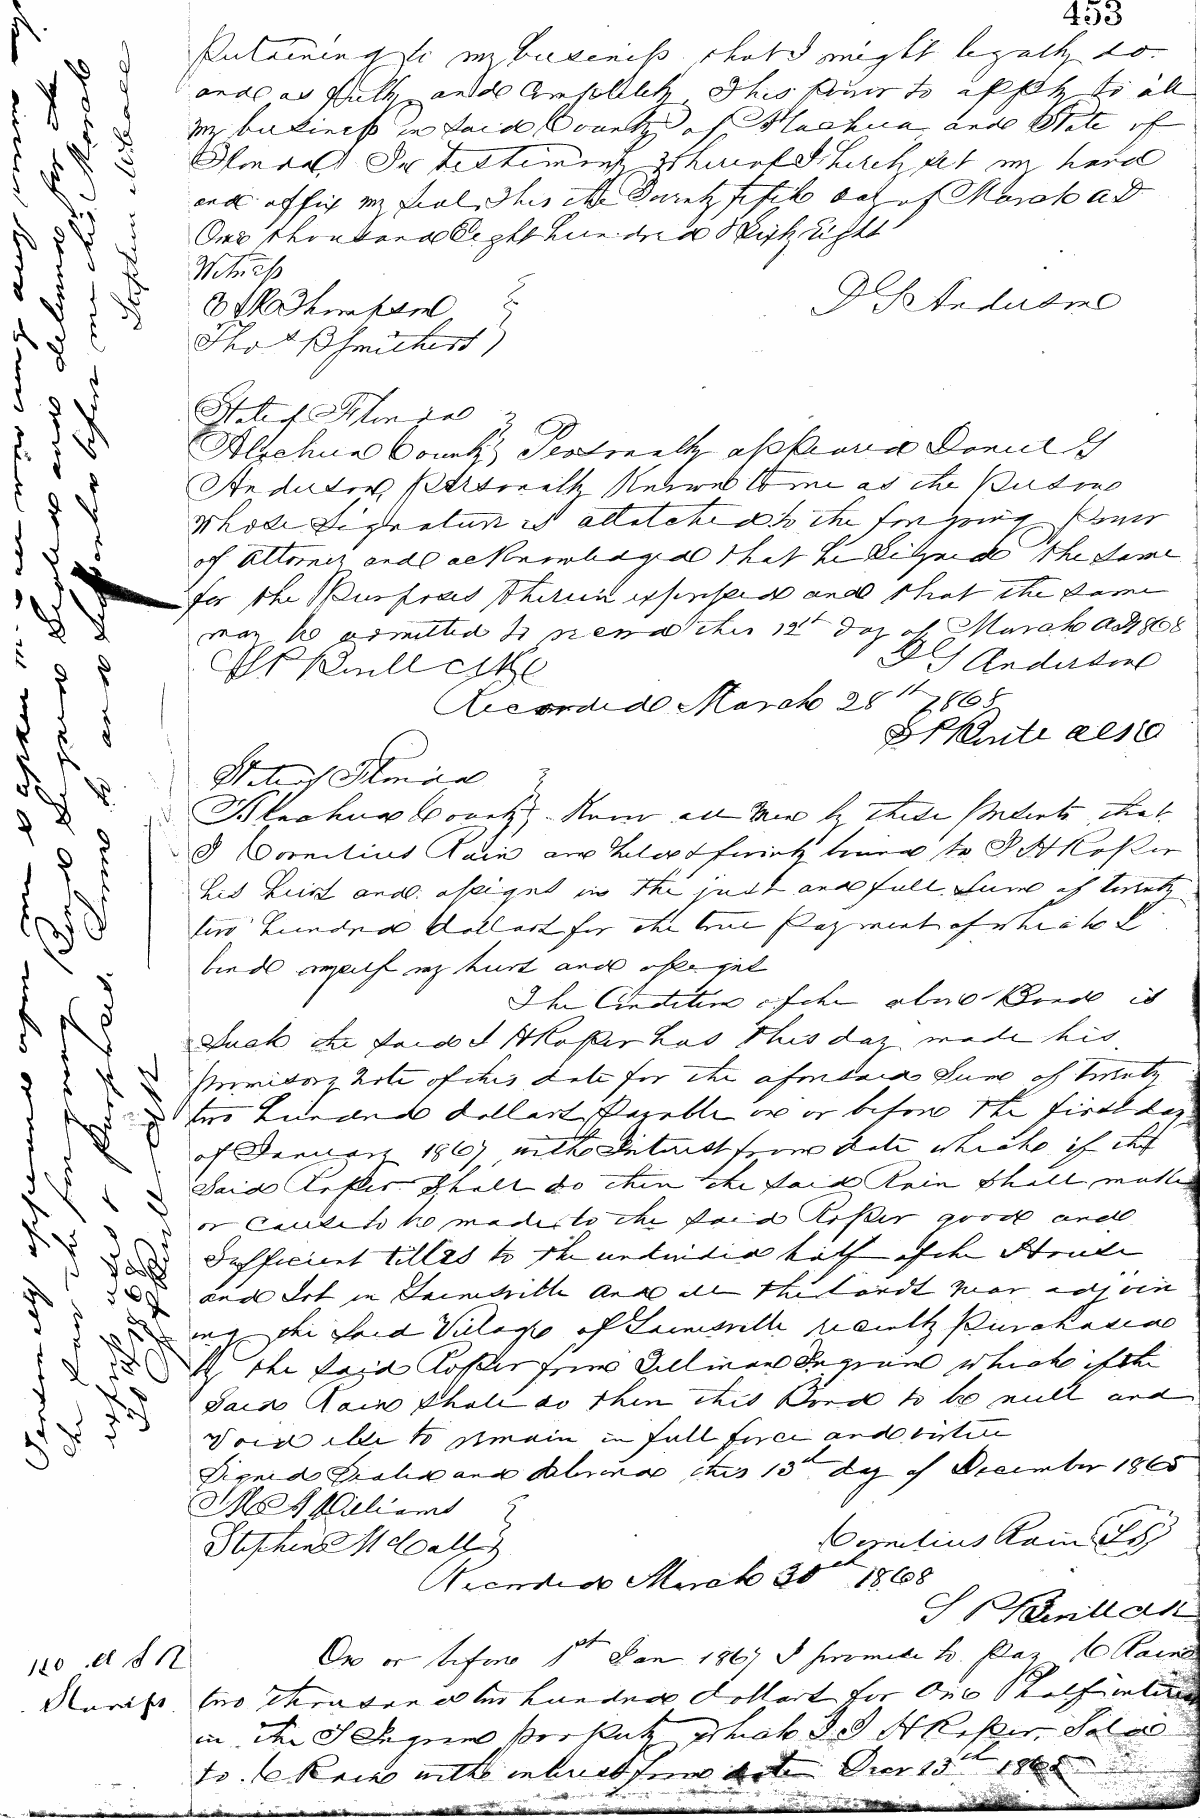 453
Pertaining to my business that I might legally do
and as fully and completely This power to apply to all
my business in said County of Alachua and State of
Florida In testimony whereof I hereby set my hand
and affix my seal, this the Twenty fifth day of March AD
One thousand Eight hundred Sixty Eight
Witness
Thompson
Thos B Smithers
D G Anderson
State of Florida
Alachua County Personally appeared Daniel G
Anderson personally Known to me as the Person
whose signature is attatched to the foregoing Power
of Attorney and acknowledged that he signed the same
for the Purposes therein expressed and that the same
may be admitted to record this 12th day of March AD 1868
D G Anderson
Recorded March 28th 1868
State of Florida
Alachua County Know all Men by these presents that
I Cornelius Rain am held & firmly bound to I H Roper
his heirs and assigns in the just and full sum of twenty
two hundred dollars for the true Payment of which I
bind myself my heirs and assigns
The Condition of the above Bond is
Such the said I H Roper has this day made his
promisory note of this date for the aforesaid Sum of twenty
two hundred dollars Payable on or before the first day
of January 1867 with Interest from date which if the
Said Roper Shall do then the said Rain Shall make
or cause to be made to the said Roper good and
Sufficient titles to the undivided half of the House
and Lot in Gainesville and all the lands near adjoin
ing the said Village of Gainesville recently Purchased
by the said Roper from Tillman Ingram which if the
Said Rain Shall do then this Bond to be null and
Void else to remain in full force and virtue
Signed Sealed and delivered this 13th day of December 1865
Williams
Stephen McCall
Cornelius Rain LS
Recorded March 30th 1868
On or before 1st Jan 1867 I promise to Pay C Rain
two thousand two hundred dollars for One half interest
in the T Ingram property which I I H Roper Sold
to C Rain with interest from date Decr 13th 1865
Personally appeared
the foregoing Bond Signed Sealed and delivered for the
uses & purposes Sworn to and Subscribed before me this March
30 1868
Stephen McCall